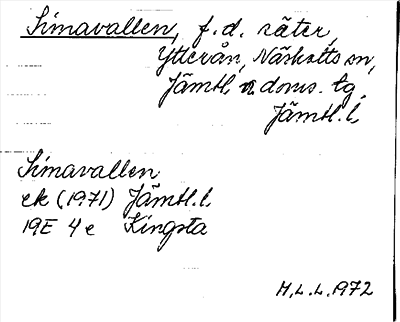 Simavallen, f.d. säter,
Ytterån, Näskotts sn,
Jämtl. n. doms. tg,
Jämtl. l.
Simavallen
ek (1971) Jämtl. l.
19E 4e Kingsta
M.L.L. 1972